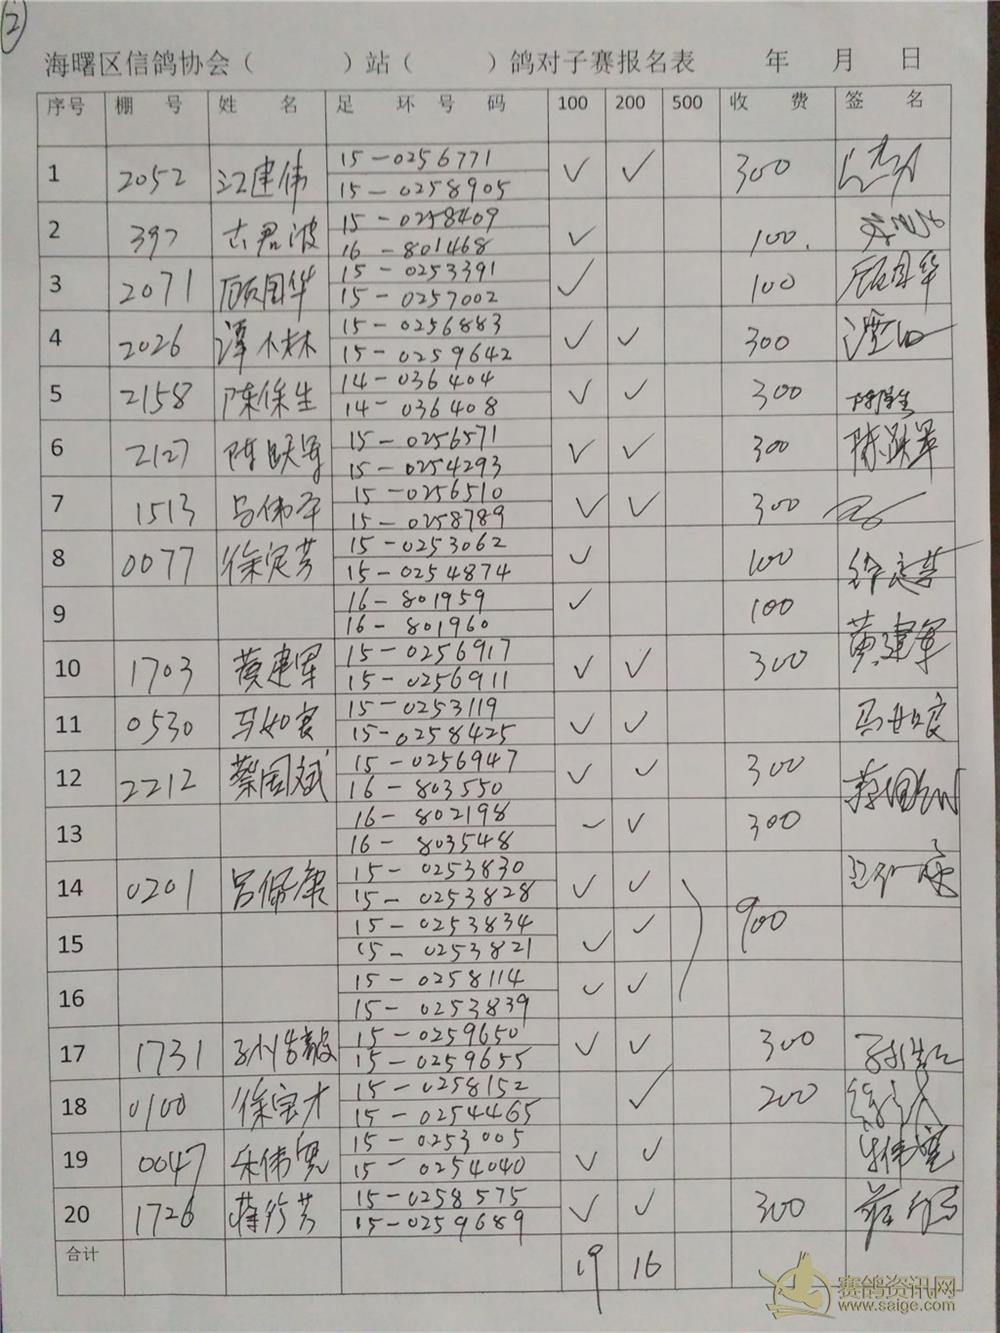 2
海曙区信鸽协会（ ）站（ ）鸽对子赛报名表 年 月 日
序号 棚 号 姓 名 足 环 号 码 100 200 500 收 费 签 名
1 2052 江建伟 15-0256771 ✓ ✓ 300
15-0258905
2 397 古君波 15-0258409 ✓ 100.
16-801468
3 2071 顾国华 15-0253391 ✓ 100 顾国华
15-0257002
4 2026 潭小林 15-0256883 ✓ ✓ 300
15-0259642
5 2158 陈保生 14-036404 ✓ ✓ 300
14-036408
6 2127 陈跃军 15-0256571 ✓ ✓ 300 陈跃军
15-0254293
7 1513 吕伟军 15-0256510 ✓ ✓ 300
15-0258789
8 0077 徐定芳 15-0253062 ✓ 100 徐定芳
15-0254874
9 16-801959 ✓ 100
16-801960
10 1703 黄建军 15-0256917 ✓ ✓ 300 黄建军
15-0256911
11 0530 马如良 15-0253119 ✓ ✓ 马如良
15-0258425
12 2212 蔡国斌 15-0256947 ✓ ✓ 300 蔡国斌
16-803550
13 16-802198 ✓ ✓ 300
16-803548
14 0201 吕佩康 15-0253830 ✓ ✓
15-0253828
15 15-0253834 ✓ ✓ 900
15-0253821
16 15-0258114 ✓ ✓
15-0253839
17 1731 孙浩毅 15-0259650 ✓ ✓ 300
15-0259655
18 0100 徐宝才 15-0258152 ✓ 200
15-0254465
19 0047 乐伟宽 15-0253005 ✓ ✓ 乐伟宽
15-0254040
20 1726 蒋行芳 15-0258575 ✓ ✓ 300
15-0259689
合计 19 16
赛鸽资讯网
www.saige.com